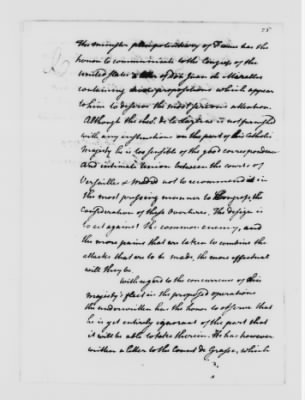 75
The minister plenipotentiary of France has the
honor to communicate to the Congress of the
United States a letter of Don Juan de Miralles
containing propositions which appear
to him to deserve the most serious attention.
Although the chev. de la Luzerne is not furnished
with any instructions on the part of his Catholic
Majesty he is too sensible of the good correspondence
and intimate union between the courts of
Versailles & Madrid not to recommend in
the most pressing manner to Congress, the
consideration of these overtures. The design is
to act against the common enemy, and
the more pains that are taken to combine the
attacks that are to be made, the more effectual
will they be.
With regard to the concurrence of his
Majesty's fleet in the proposed operations
the underwritten has the honor to observe that
he is yet entirely ignorant of the part that
it will be able to take therein. He has however
written a letter to the Count de Grasse, which